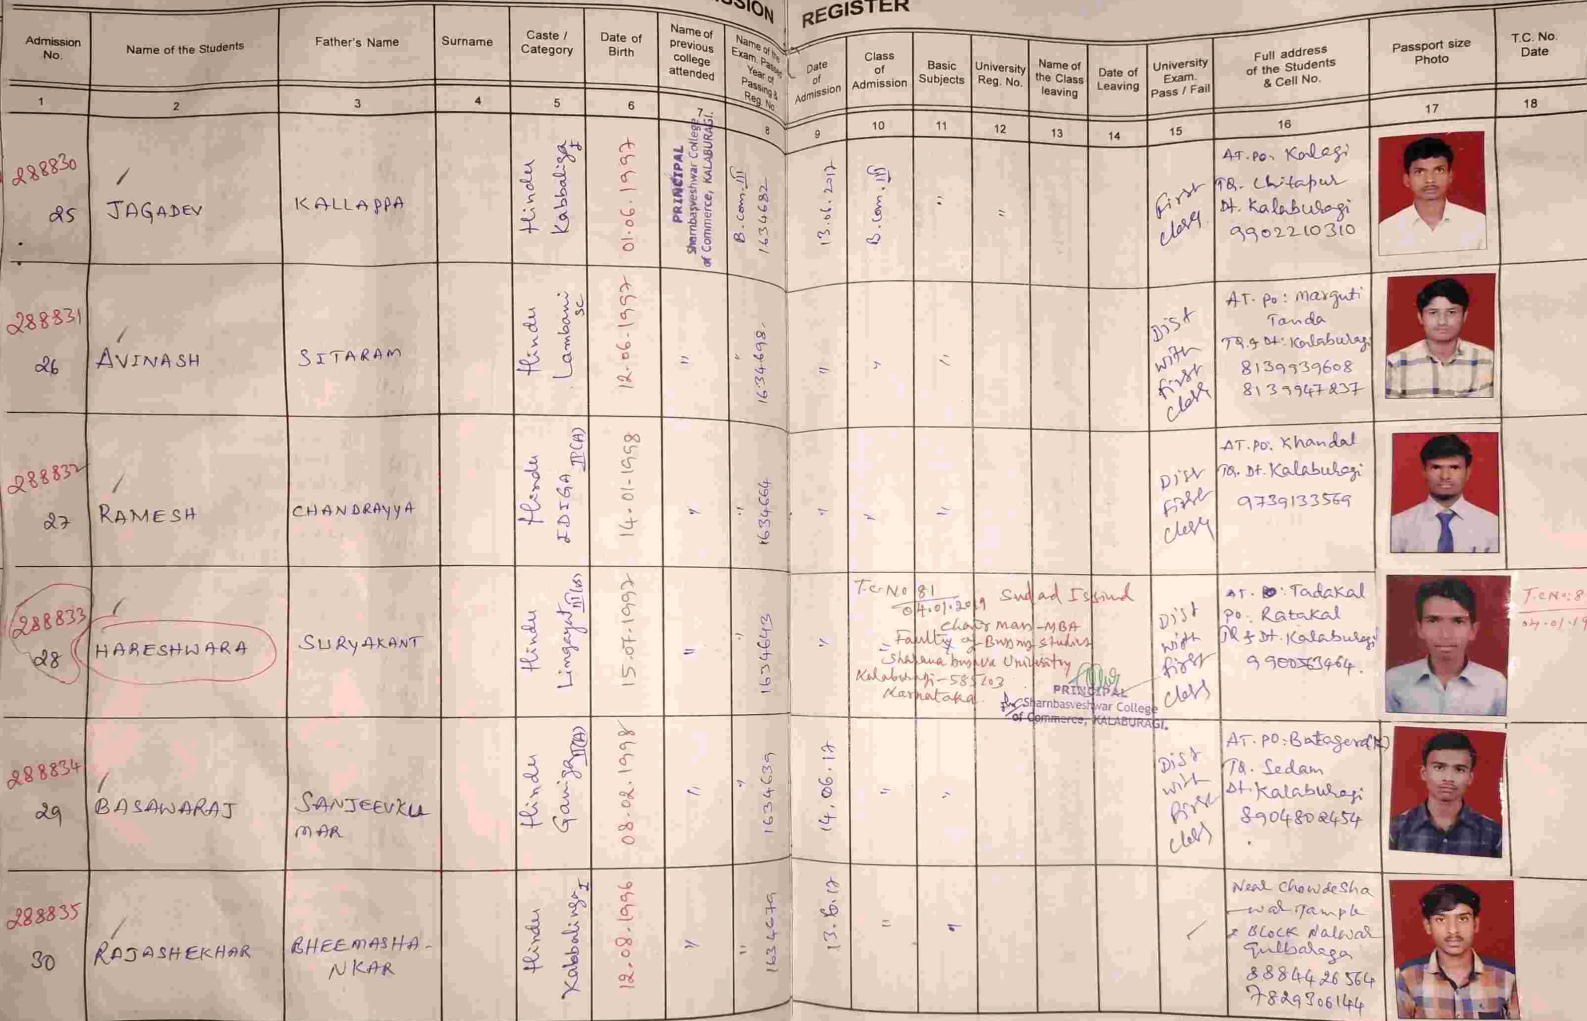 SSION REGISTER
Admission No. | Name of the Students | Father's Name | Surname | Caste / Category | Date of Birth | Name of previous college attended | Name of the Exam. Passed Year of Passing & Reg. No. | Date of Admission | Class of Admission | Basic Subjects | University Reg. No. | Name of the Class leaving | Date of Leaving | University Exam. Pass / Fail | Full address of the Students & Cell No. | Passport size Photo | T.C. No. Date
1 2 3 4 5 6 7 8 9 10 11 12 13 14 15 16 17 18
288830
25
JAGADEV
KALLAPPA
Hindu
Kabbaliga I
01.06.1997
PRINCIPAL
Sharnbasveshwar College
of Commerce, KALABURAGI.
B.com.III
1634682
13.06.2017
B.com.III
"
"
First
class
AT.po. Kalagi
TQ. Chitapur
Dt. Kalaburagi
9902210310
288831
26
AVINASH
SITARAM
Hindu
Lambani
SC
12.06.1997
"
"
1634698.
"
"
"
Dist
with
First
class
AT. po: Marguti
Tanda
TQ & Dt: Kalaburagi
8139939608
8139947837
288832
27
RAMESH
CHANDRAYYA
Hindu
IDIGA II(A)
14.01-1998
"
"
1634664
"
"
"
Dist
First
class
AT.po. Khandal
TQ. Dt. Kalaburagi
9739133569
288833
28
HARESHWARA
SURYAKANT
Hindu
Lingayat III(B)
15.07.1997
"
"
1634643
"
T.C No 81
04.01.2019
Chair man-MBA
Faculty of
Sharana
Kalaburagi-585103
Karnataka
PRINCIPAL
for Sharnbasveshwar College
of Commerce, KALABURAGI.
Dist
with
First
class
AT. : Tadakal
po. Ratakal
TQ & Dt. Kalaburagi
9900563464.
T.C No: 8
04.01.19
288834
29
BASAWARAJ
SANJEEVKU
MAR
Hindu
Ganiga II(A)
08.02.1998
"
"
1634639
14.06.17
"
"
Dist
with
First
class
AT. PO: Batagera
TQ. Sedam
Dt. Kalaburagi
8904802454
288835
30
RAJASHEKHAR
BHEEMASHA-
NKAR
Hindu
Kabbalinga I
12.08.1996
"
"
1634679
13.6.17
"
"
Near Chowdesha
BLOCK
8884426564
7829306144